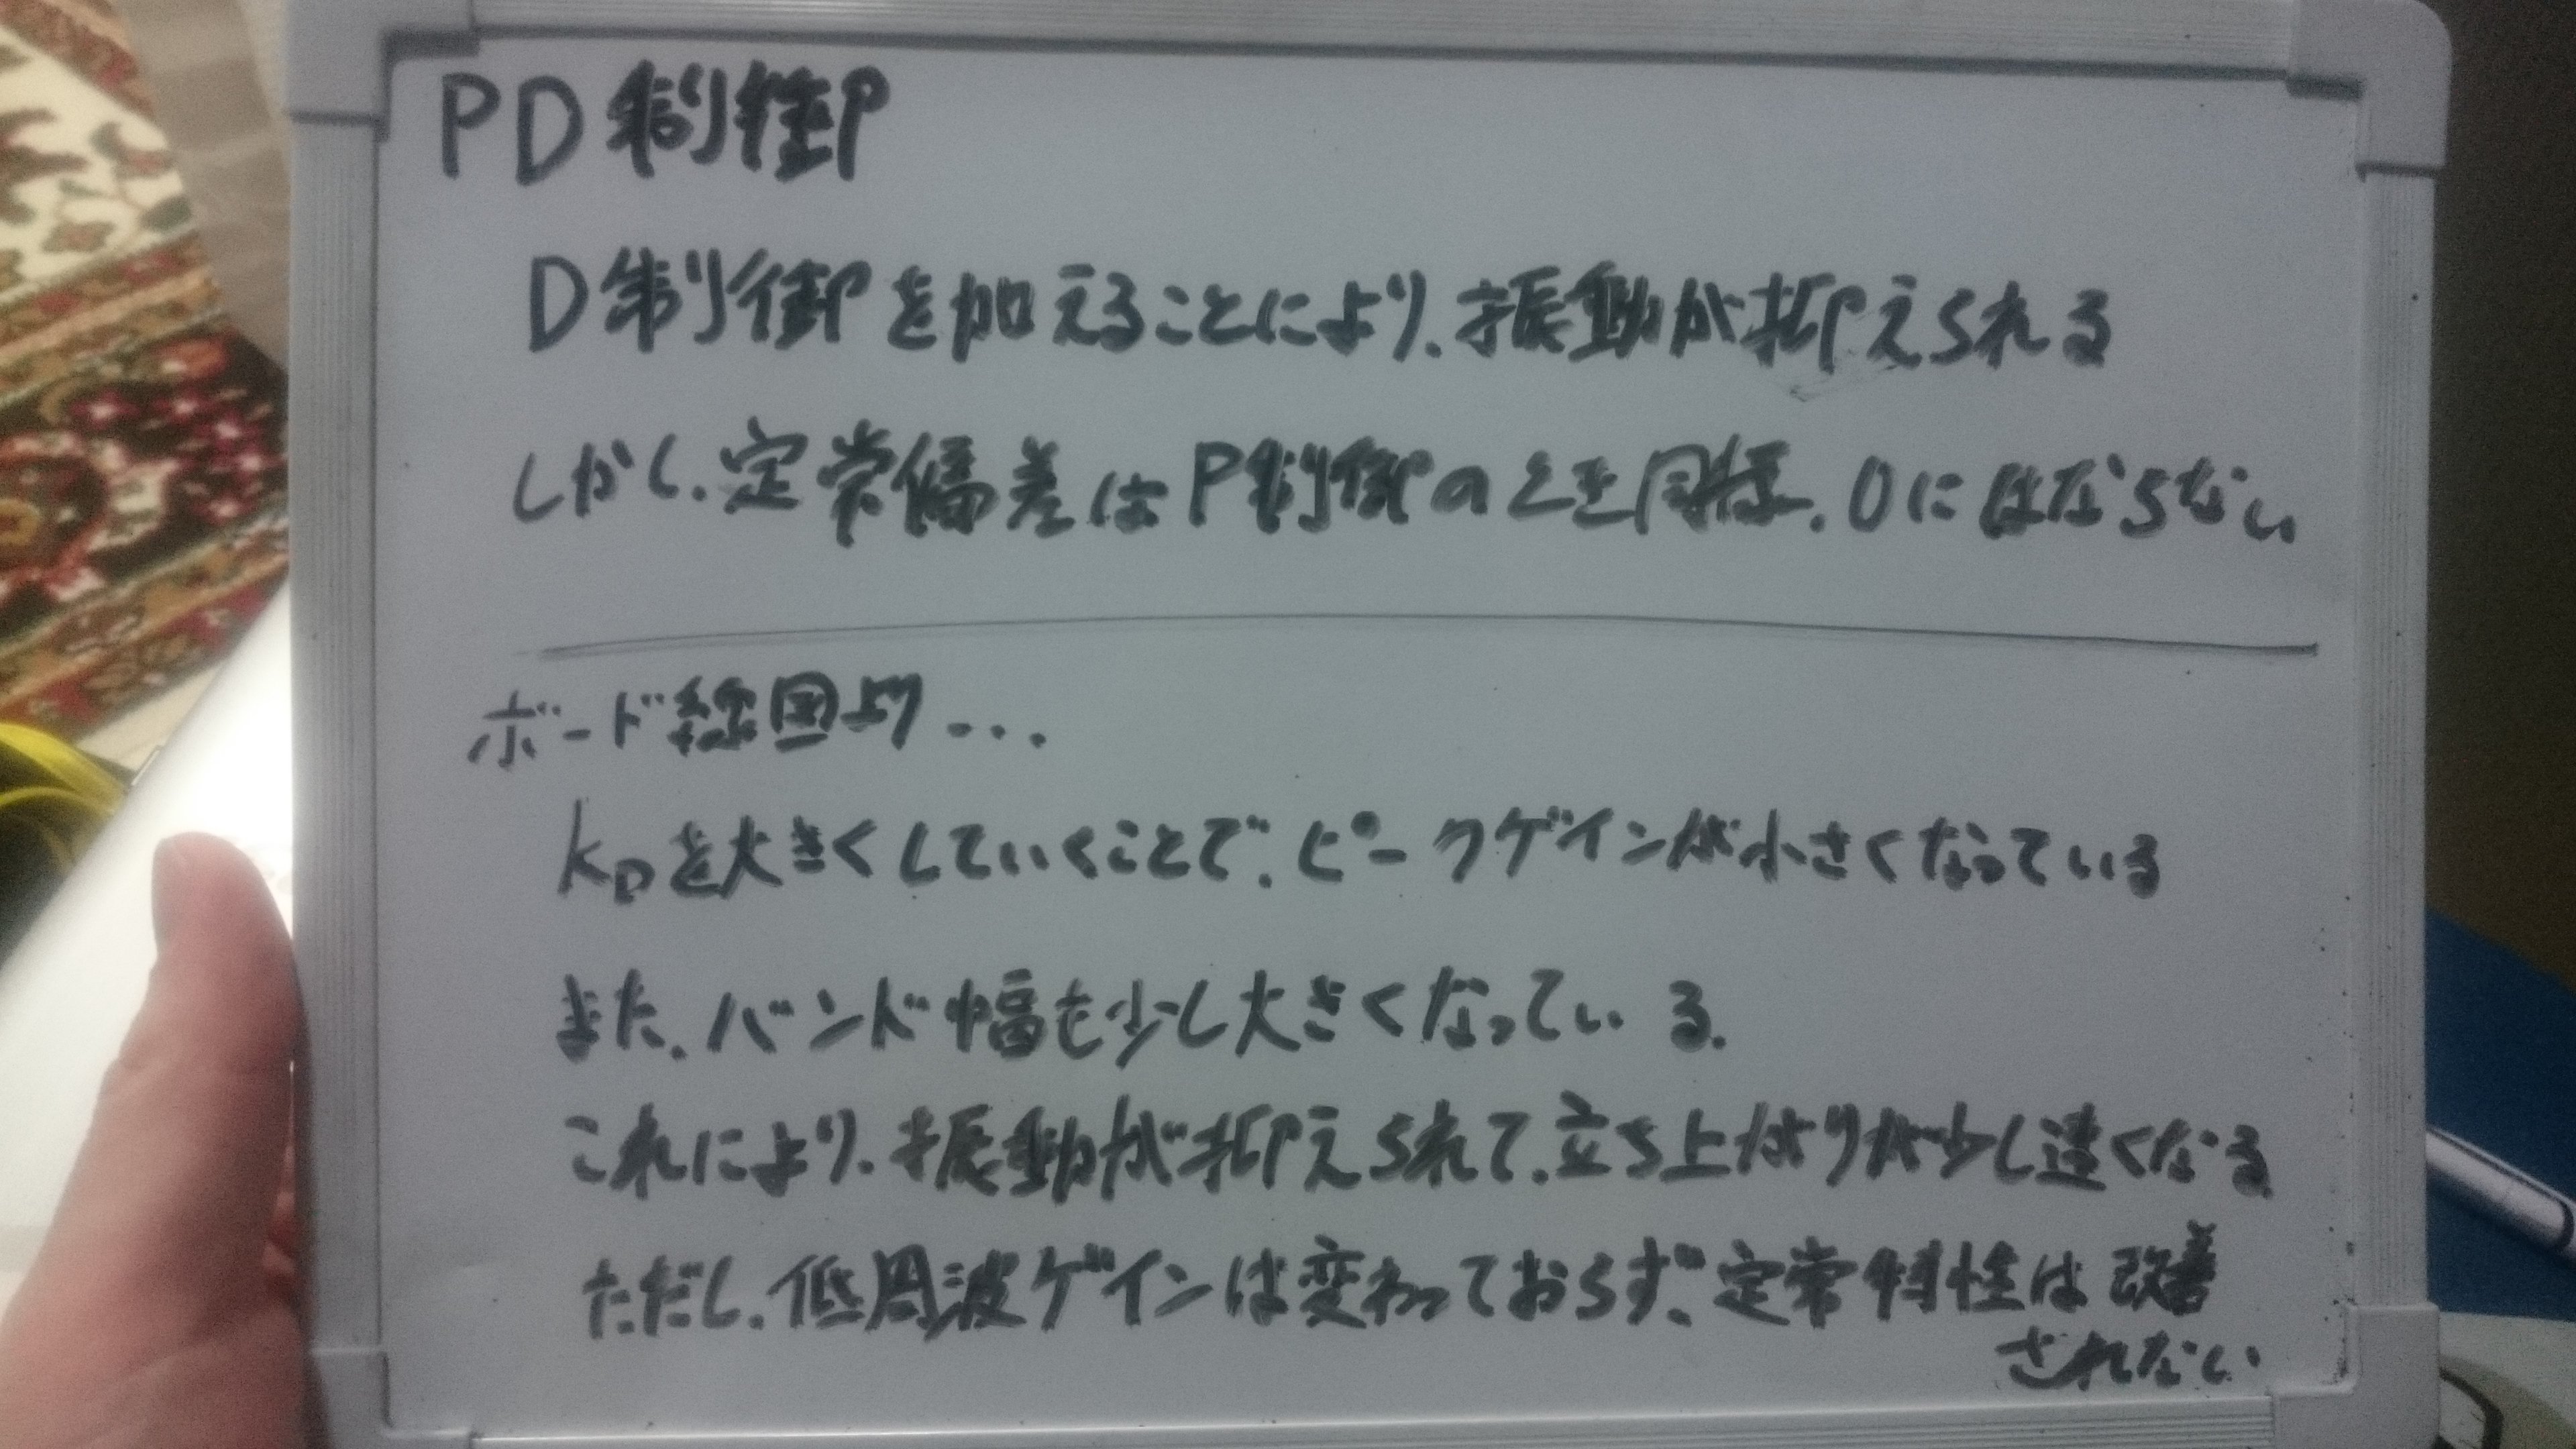 PD制御
D制御を加えることにより、振動が抑えられる
しかし、定常偏差はP制御のとき同様、0にはならない
ボード線図より...
kDを大きくしていくことで、ピークゲインが小さくなっている
また、バンド幅も少し大きくなっている。
これにより、振動が抑えられて、立ち上がりが少し速くなる。
ただし、低周波ゲインは変わっておらず、定常特性は改善
されない